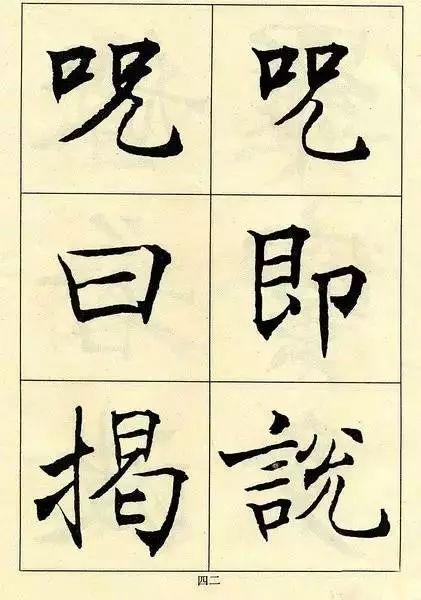 呪即說
呪曰揭
四二